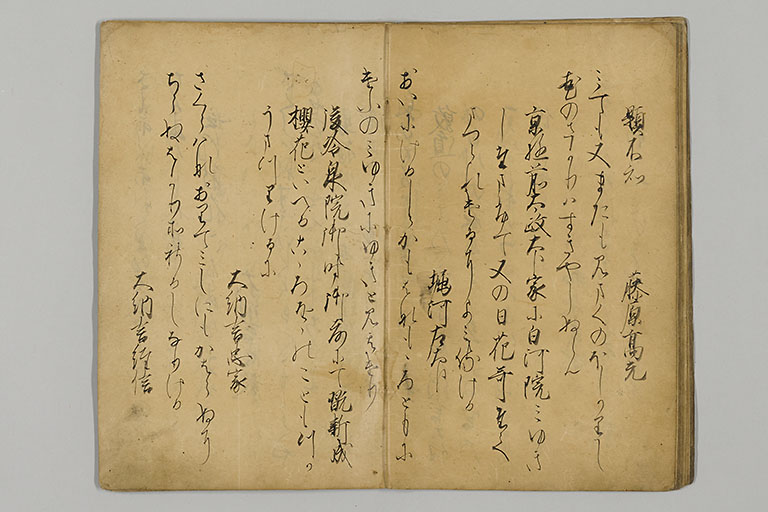 題不知　藤原高光
みても又またも見まくのほしかりし
花のさかりはすきやしぬらん
京極前太政大臣家に白河院みゆき
し給て又の日花哥たて
まつられけるによみ侍ける
堀河左大臣
おいにけるしらかも花もゝろともに
けふのみゆきにゆきと見えけり
後冷泉院御時御前にて翫新成
櫻花といへるこゝろををのこともつか
うまつりけるに
大納言忠家
さくら花おりてみしにもかはらぬに
ちらぬはかりそしるしなりける
大納言経信